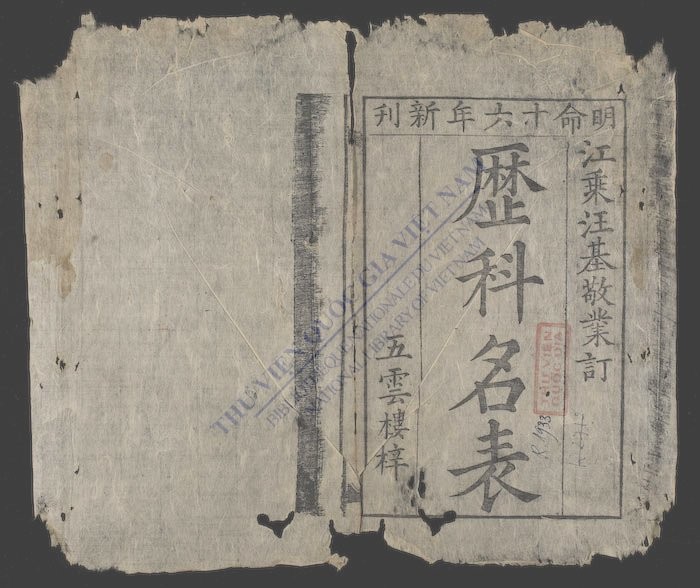 明命十六年新刊
江乘汪基敬業訂
歷科名表
五雲樓梓
THƯ VIỆN QUỐC GIA VIỆT NAM
BIBLIOTHEQUE NATIONALE DU VIETNAM
NATIONAL LIBRARY OF VIETNAM
THƯ VIỆN
QUỐC GIA
R.1933